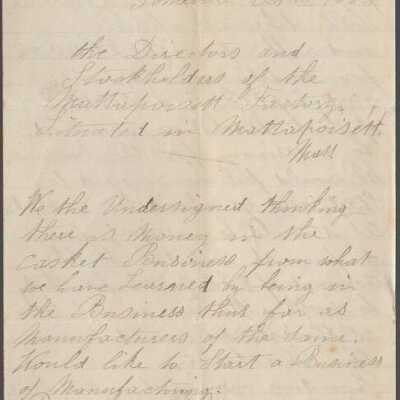 the Directors and
Stockholders of the
Mattapoisett Factory,
Situated in Mattapoisett.
Mass
We the Undersigned thinking
there is Money in the
Casket Business from what
we have Learned by being in
the Business thus far as
Manufacturers of the Same.
Would like to Start a Business
of Manufacturing.